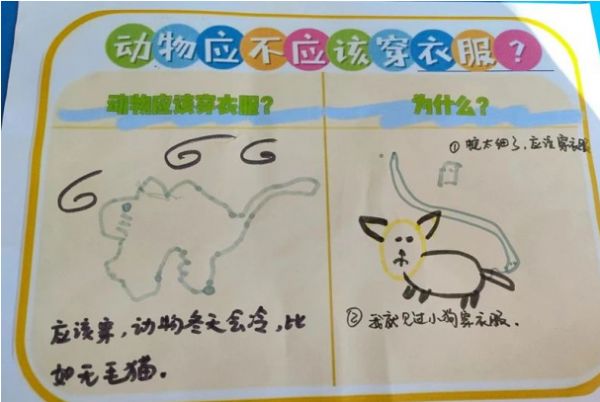 动物应不应该穿衣服？
动物应该穿衣服？
为什么？
①
太细了，应该穿衣服
应该穿，动物冬天会冷，比
如无毛猫。
②我就见过小狗穿衣服．